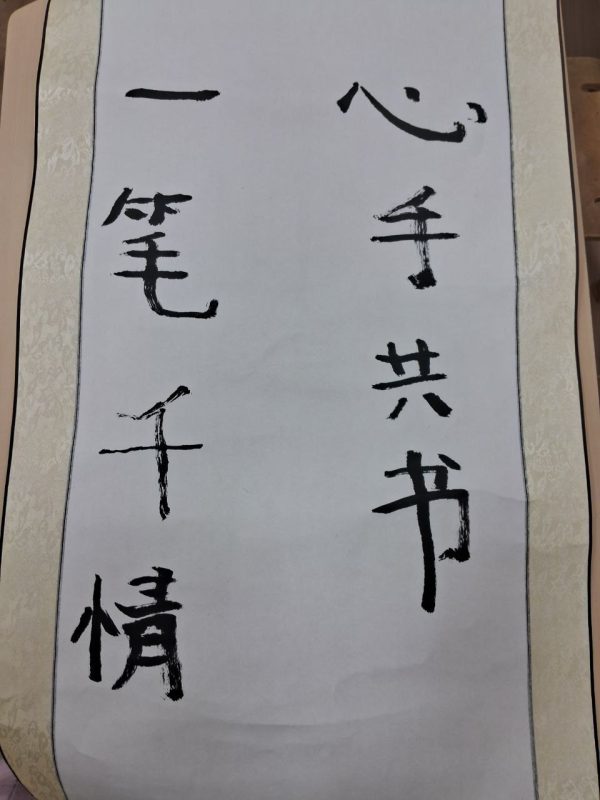 心手共书
一笔千情